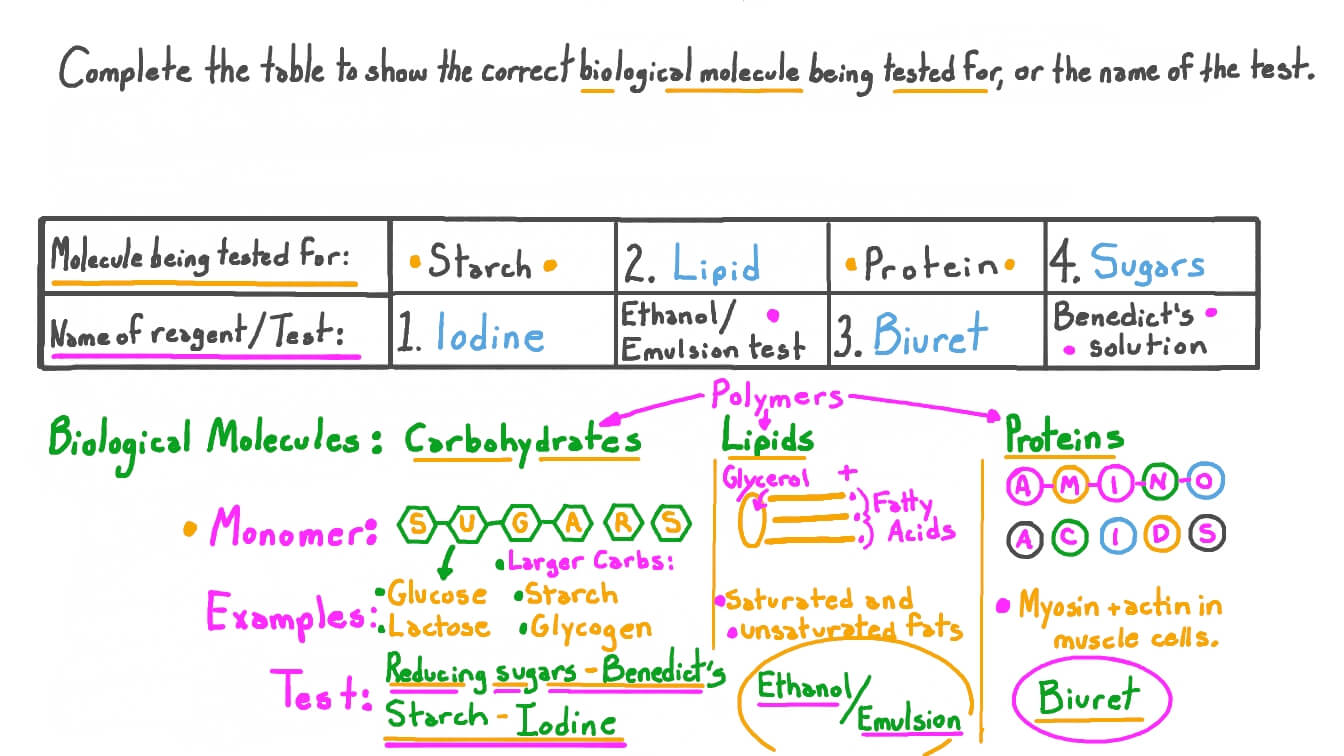 Complete the table to show the correct biological molecule being tested for, or the name of the test.
Molecule being tested for: • Starch • 2. Lipid • Protein • 4. Sugars
Name of reagent/Test: 1. Iodine Ethanol/ Emulsion test 3. Biuret Benedict's solution
Polymers
Biological Molecules: Carbohydrates Lipids Proteins
Glycerol + AMINO
• Monomer: SUGARS Fatty Acids ACIDS
• Larger Carbs:
Examples: • Glucose • Starch • Saturated and • Myosin + actin in
• Lactose • Glycogen • unsaturated fats muscle cells.
Test: Reducing sugars - Benedict's Ethanol/ Biuret
Starch - Iodine Emulsion